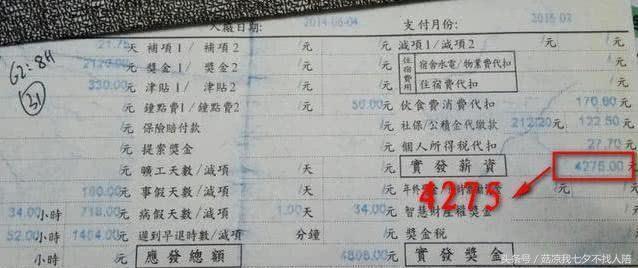 入廠日期: 2014-06-04 支付月份: 2016-03
21.75 天 補項1/ 補項2 /元 減項1/減項2 / /元
G2:8H 2120.00 元 獎金1/ 獎金2 /元 住宿費用 宿舍水電/物業費代扣 /元
330.00 元 津貼1/ 津貼2 /元 住宿費代扣 /元
31 /元 鐘點費1/鐘點費2 / 50.00 元 伙食費消費代扣 170.60 元
/元 保險賠付款 /元 社保/公積金代繳款 212.20 元 122.50 元
/元 提案獎金 /元 個人所得稅代扣 27.70 元
/元 曠工天數/減項 /天 /元 實發薪資 4275.00 元
160.00 元 事假天數/減項 /天 /元 4275
34.00 小時 718.00 元 病假天數/減項 1.00 天 34.00 元 智慧財產權獎金 /元
52.00 小時 1464.00 元 遲到早退時數/減項 分鐘 /元 獎金稅 /元
小時 /元 應發總額 4808.00 元 實發獎金
头条号/菇凉我七夕不找人陪